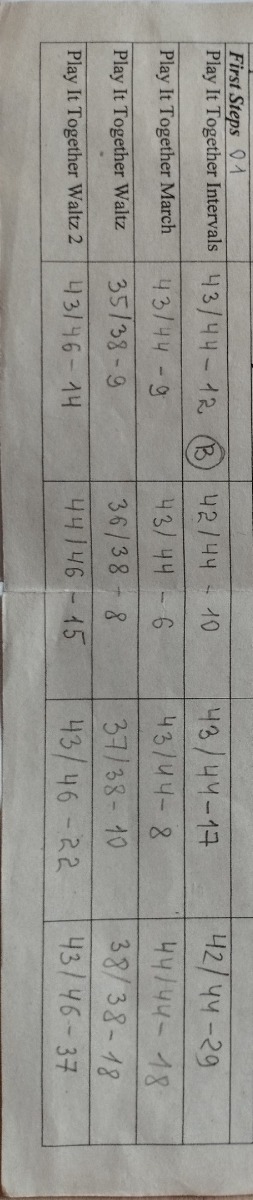 First Steps 01
Play It Together Intervals 43/44-12 (B) 42/44-10 43/44-17 42/44-29
Play It Together March 43/44-9 43/44-6 43/44-8 44/44-18
Play It Together Waltz 35/38-9 36/38-8 37/38-10 38/38-18
Play It Together Waltz 2 43/46-14 44/46-15 43/46-22 43/46-37